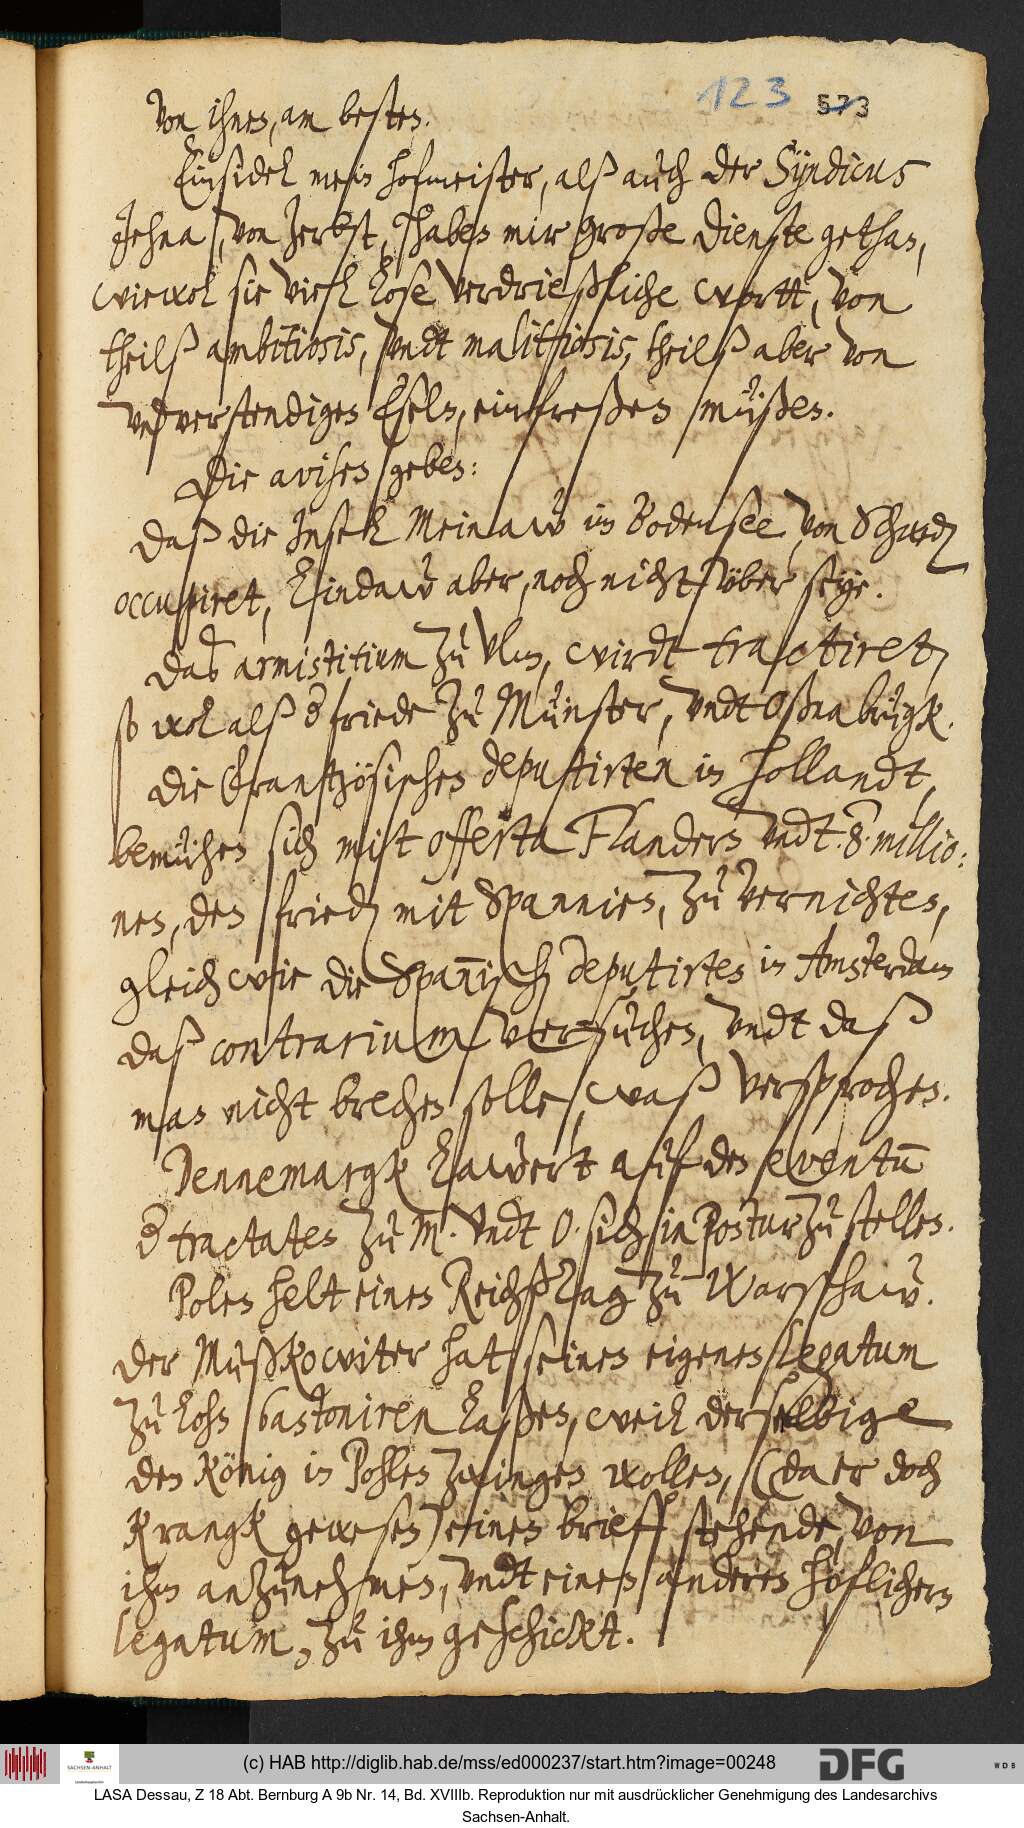 123 573
von ihnen, am besten.
Einsidel mein hofmeister, alß auch der Syndicus
Jehna, von Zerbst, haben mir große dienste gethan,
wiewol sie viel lose verdrießliche wortt, von
theilß ambitiosis, undt malitiosis, theilß aber von
unverstendigen Eseln, einfreßen müßen.
Die avisen geben:
Daß die Insel Meinaw im Bodensee, von Schwed
occupiret, Lindaw aber, noch nicht über seye.
Das armistitium zu Ulm, wirdt tractiret,
so wol alß d friede zu Münster, undt Oßnabrügk.
Die Frantzösischen deputirten in Hollandt,
bemühen sich mitt offerta Flandern undt .8. millio:
nen, den fried mit Spannien, zu vernichten,
gleich wie die Spannisch deputirten in Amsterdam
daß contrarium versuchen, undt daß
man nicht brechen solle, waß versprochen.
Dennemargk lawert auf den eventum
d tractaten zu M. undt O. sich in Postur zu stellen.
Polen helt einen Reichßtag zu Warschaw.
Der Mußkowiter hat seinen eigenen legatum
zu lohn bastoniren laßen, weil derselbige
den König in Pohlen zwingen wollen, (da er doch
krangk gewesen) einen brieff stehende, von
ihm anzunehmen, undt einen anderen höflichern
legatum, zu ihm geschickt.
(c) HAB http://diglib.hab.de/mss/ed000237/start.htm?image=00248
SACHSEN-ANHALT
DFG
WDB
LASA Dessau, Z 18 Abt. Bernburg A 9b Nr. 14, Bd. XVIIIb. Reproduktion nur mit ausdrücklicher Genehmigung des Landesarchivs
Sachsen-Anhalt.